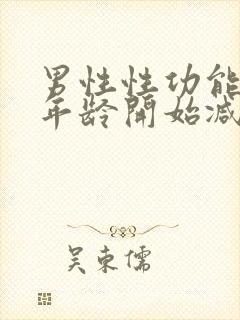 男性性功能
年龄開始减
吴東儒